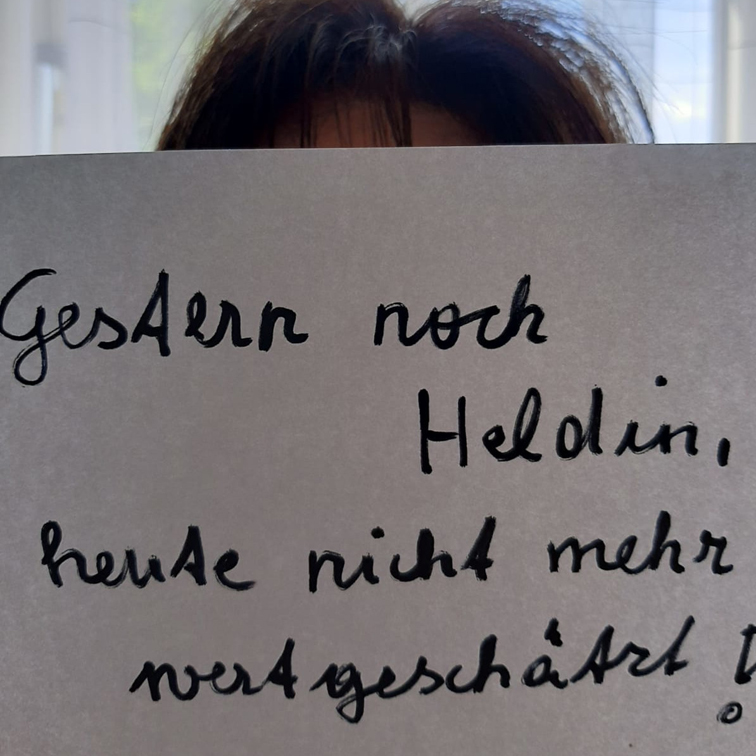 Gestern noch
Heldin,
heute nicht mehr
wertgeschätzt!